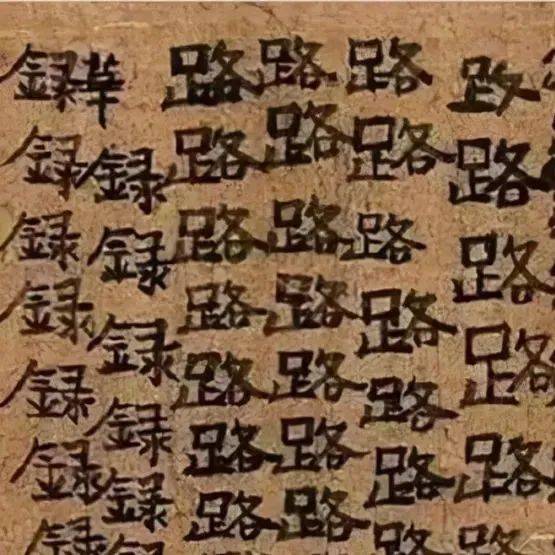 路路路路路
路路路路路路路
路路路路路路路
路路路路路路路
録録録録録
録録録録録録録